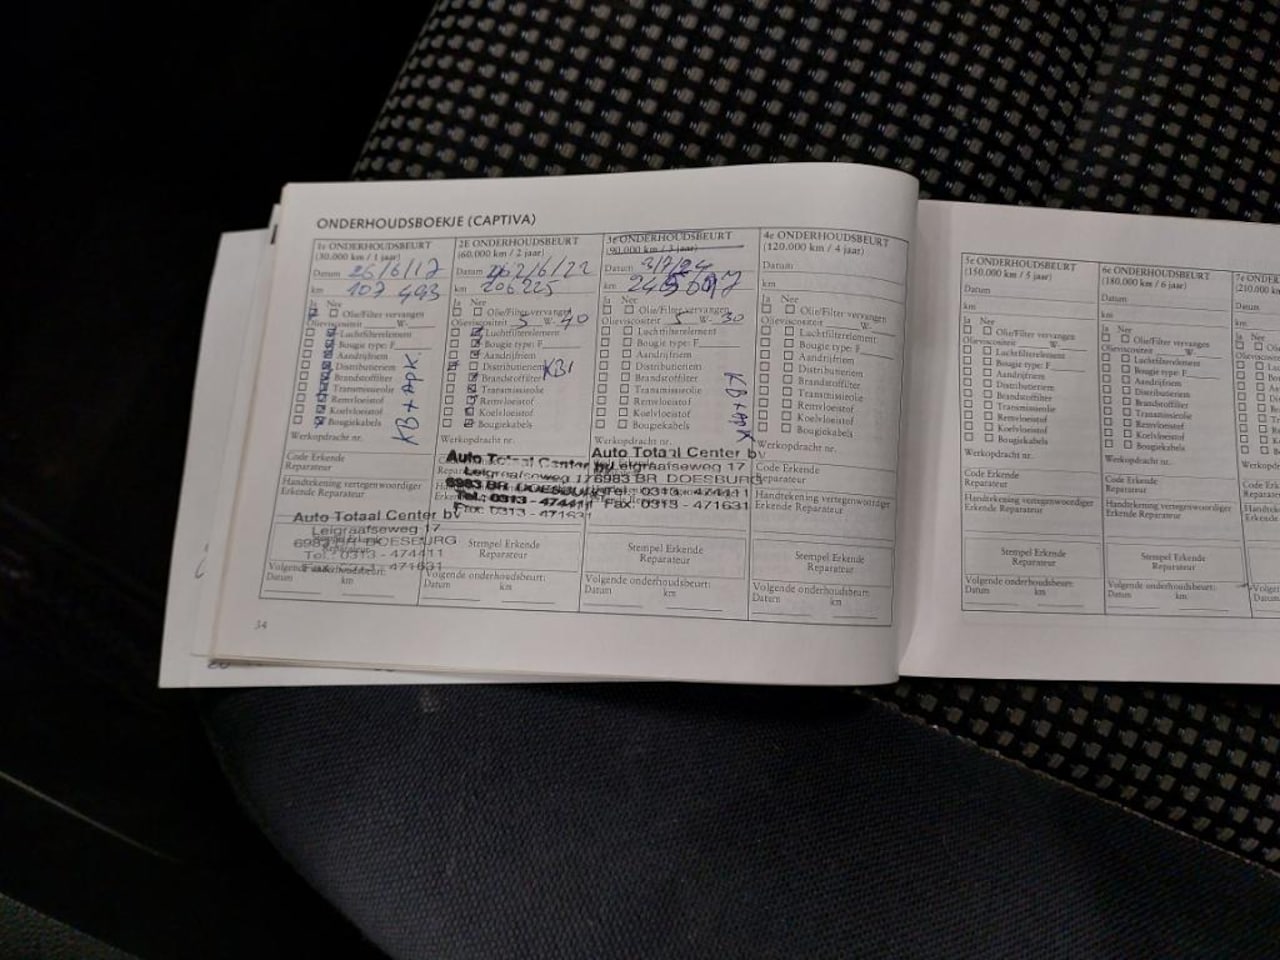 ONDERHOUDSBOEKJE (CAPTIVA)
1e ONDERHOUDSBEURT
(30.000 km / 1 jaar)
Datum 26/6/17
km 107 493
Ja Nee
Olie/Filter vervangen
Olieviscositeit W-
Luchtfilterelement
Bougie type: F
Aandrijfriem
Distributieriem
Brandstoffilter
Transmissieolie
Remvloeistof
Koelvloeistof
Bougiekabels
KB + APK
Werkopdracht nr.
Code Erkende
Reparateur
Handtekening vertegenwoordiger
Erkende Reparateur
Auto Totaal Center bv
Leigraafseweg 17
6983 BR DOESBURG
Tel.: 0313 - 474411
Fax: 0313 - 471631
Volgende onderhoudsbeurt:
Datum km
2E ONDERHOUDSBEURT
(60.000 km / 2 jaar)
Datum 2/6/22
km 206225
Ja Nee
Olie/Filter vervangen
Olieviscositeit 5 W- 40
Luchtfilterelement
Bougie type: F
Aandrijfriem
Distributieriem
Brandstoffilter
Transmissieolie
Remvloeistof
Koelvloeistof
Bougiekabels
KB1
Werkopdracht nr.
Auto Totaal Center bv
Leigraafseweg 17
6983 BR DOESBURG
Tel.: 0313 - 474411
Fax: 0313 - 471631
Stempel Erkende
Reparateur
Volgende onderhoudsbeurt:
Datum km
3e ONDERHOUDSBEURT
(90.000 km / 3 jaar)
Datum 3/7/24
km
Ja Nee
Olie/Filter vervangen
Olieviscositeit 5 W- 30
Luchtfilterelement
Bougie type: F
Aandrijfriem
Distributieriem
Brandstoffilter
Transmissieolie
Remvloeistof
Koelvloeistof
Bougiekabels
KB + APK
Werkopdracht nr.
Auto Totaal Center bv
Leigraafseweg 17
6983 BR DOESBURG
Tel.: 0313 - 474411
Fax: 0313 - 471631
Stempel Erkende
Reparateur
Volgende onderhoudsbeurt:
Datum km
4e ONDERHOUDSBEURT
(120.000 km / 4 jaar)
Datum
km
Ja Nee
Olie/Filter vervangen
Olieviscositeit W-
Luchtfilterelement
Bougie type: F
Aandrijfriem
Distributieriem
Brandstoffilter
Transmissieolie
Remvloeistof
Koelvloeistof
Bougiekabels
Werkopdracht nr.
Code Erkende
Reparateur
Handtekening vertegenwoordiger
Erkende Reparateur
Stempel Erkende
Reparateur
Volgende onderhoudsbeurt:
Datum km
34
5e ONDERHOUDSBEURT
(150.000 km / 5 jaar)
Datum
km
Ja Nee
Olie/Filter vervangen
Olieviscositeit W-
Luchtfilterelement
Bougie type: F
Aandrijfriem
Distributieriem
Brandstoffilter
Transmissieolie
Remvloeistof
Koelvloeistof
Bougiekabels
Werkopdracht nr.
Code Erkende
Reparateur
Handtekening vertegenwoordiger
Erkende Reparateur
Stempel Erkende
Reparateur
Volgende onderhoudsbeurt:
Datum km
6e ONDERHOUDSBEURT
(180.000 km / 6 jaar)
Datum
km
Ja Nee
Olie/Filter vervangen
Olieviscositeit W-
Luchtfilterelement
Bougie type: F
Aandrijfriem
Distributieriem
Brandstoffilter
Transmissieolie
Remvloeistof
Koelvloeistof
Bougiekabels
Werkopdracht nr.
Code Erkende
Reparateur
Handtekening vertegenwoordiger
Erkende Reparateur
Stempel Erkende
Reparateur
Volgende onderhoudsbeurt:
Datum km
7e
(210.000
Datum
km
Ja Nee